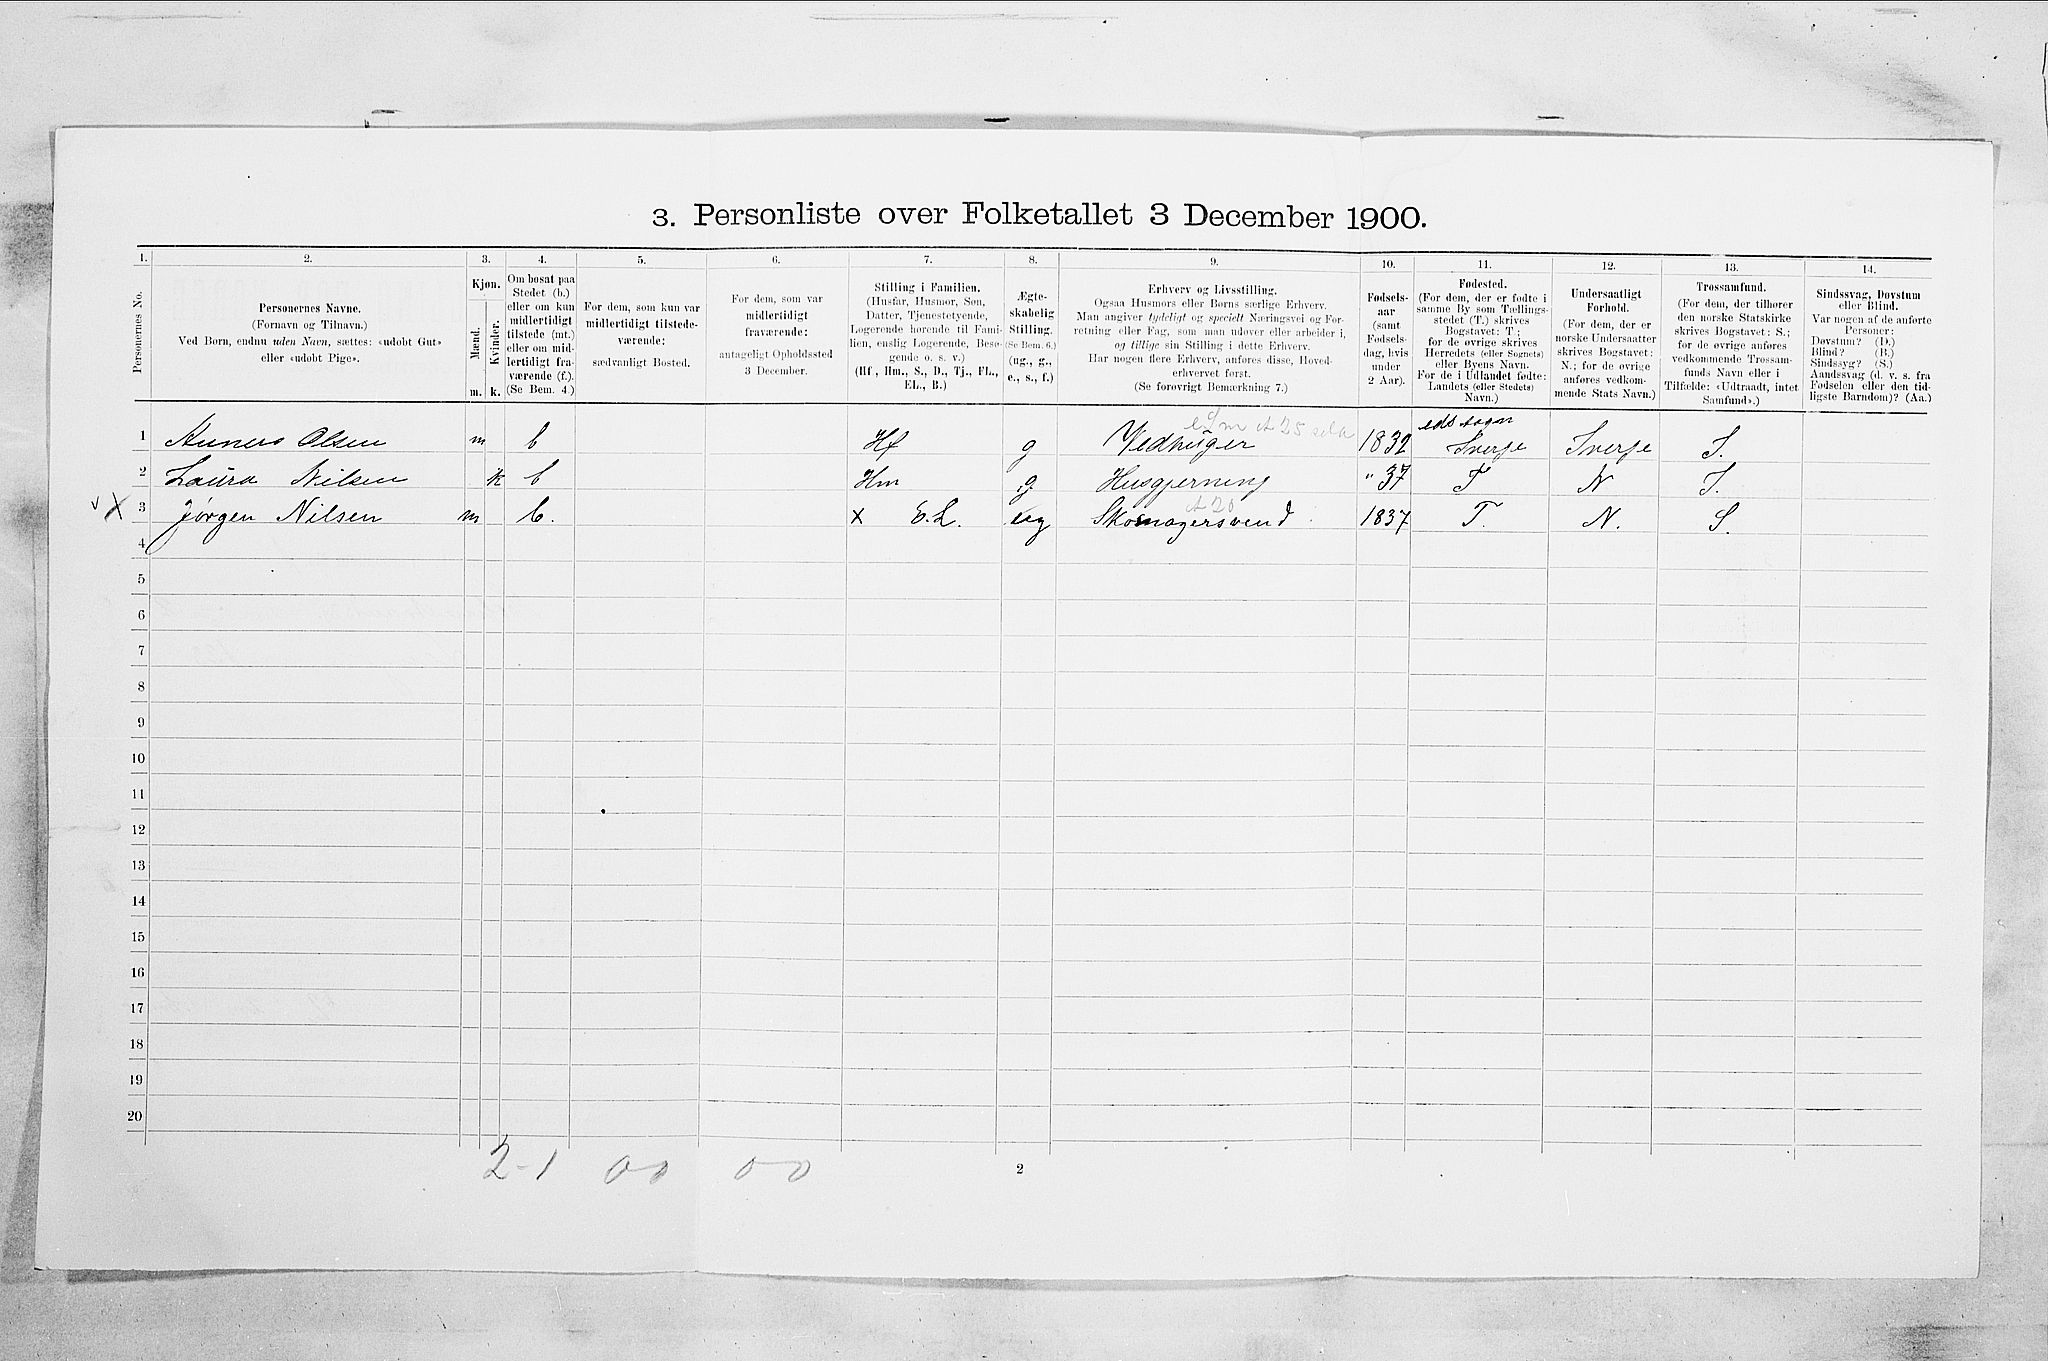 3. Personliste over Folketallet 3 December 1900.
1. 2. 3. 4. 5. 6. 7. 8. 9. 10. 11. 12. 13. 14.
Personernes No.
Personernes Navne.
(Fornavn og Tilnavn.)
Ved Børn, endnu uden Navn, sættes: «udøbt Gut»
eller «udøbt Pige».
Kjøn.
Mænd.
Kvinder.
m. k.
Om bosat paa
Stedet (b.)
eller om kun
midlertidigt
tilstede (mt.)
eller om mid-
lertidigt fra-
værende (f.).
(Se Bem. 4.)
For dem, som kun var
midlertidigt tilstede-
værende:
sædvanligt Bosted.
For dem, som var
midlertidigt
fraværende:
antageligt Opholdssted
3 December.
Stilling i Familien.
(Husfar, Husmor, Søn,
Datter, Tjenestetyende,
Logerende hørende til Fami-
lien, enslig Logerende, Besø-
gende o. s. v.)
(Hf., Hm., S., D., Tj., FL.,
EL., B.)
Ægte-
skabelig
Stilling.
(Se Bem. 6.)
(ug., g.,
e., s., f.)
Erhverv og Livsstilling.
Ogsaa Husmors eller Børns særlige Erhverv.
Man angiver tydeligt og specielt Næringsvei og For-
retning eller Fag, som man udøver eller arbeider i,
og tillige sin Stilling i dette Erhverv.
Har nogen flere Erhverv, anføres disse, Hoved-
erhvervet først.
(Se forøvrigt Bemærkning 7.)
Fødsels-
aar
(samt
Fødsels-
dag, hvis
under
2 Aar).
Fødested.
(For dem, der er fødte i
samme By som Tællings-
stedet (T.) skrives
Bogstavet: T.;
for de øvrige skrives
Herredets (eller Sognets)
eller Byens Navn.
For de i Udlandet fødte:
Landets (eller Stedets)
Navn.)
Undersaatligt
Forhold.
(For dem, der er
norske Undersaatter
skrives Bogstavet:
N.; for de øvrige
anføres vedkom-
mende Stats Navn.)
Trossamfund.
(For dem, der tilhører
den norske Statskirke
skrives Bogstavet: S.;
for de øvrige anføres
vedkommende Trossam-
funds Navn eller i
Tilfælde: «Udtraadt, intet
Samfund».)
Sindssvag, Døvstum
eller Blind.
Var nogen af de anførte
Personer:
Døvstum? (D.)
Blind? (B.)
Sindssyg? (S.)
Aandssvag (d. v. s. fra
Fødselen eller den tid-
ligste Barndom)? (Aa.)
1 Olsen m b Hf g Vedhuger 1832 Sverje Sverje S.
2 Laura Nilsen k b Hm g. Husgjerning " 37 T N S.
X 3 Jørgen Nilsen m b. x E.L. ug Skomagersvend 1837 T. N. S.
4
5
6
7
8
9
10
11
12
13
14
15
16
17
18
19
20
2-1 0-0 0-0
2